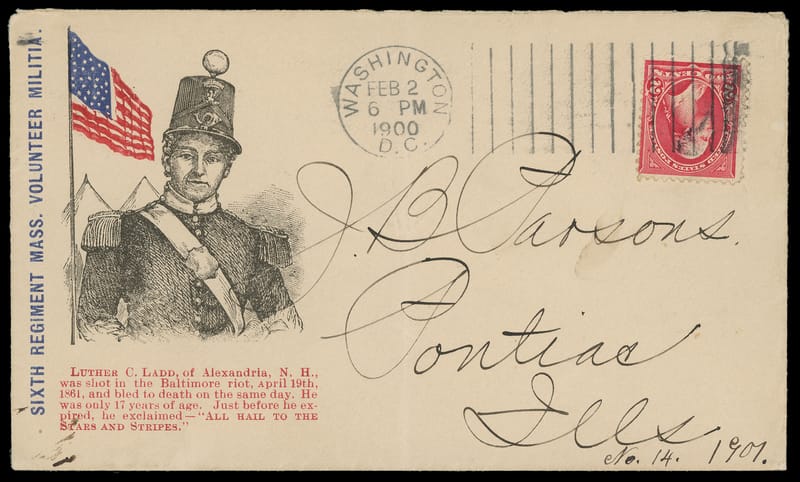 SIXTH REGIMENT MASS. VOLUNTEER MILITIA.
WASHINGTON
FEB 2
6 PM
1900
D.C.
J. B. Parsons.
Pontiac
Ills
No. 14. 1901.
LUTHER C. LADD, of Alexandria, N. H.,
was shot in the Baltimore riot, April 19th,
1861, and bled to death on the same day. He
was only 17 years of age. Just before he ex-
pired, he exclaimed—"ALL HAIL TO THE
STARS AND STRIPES."